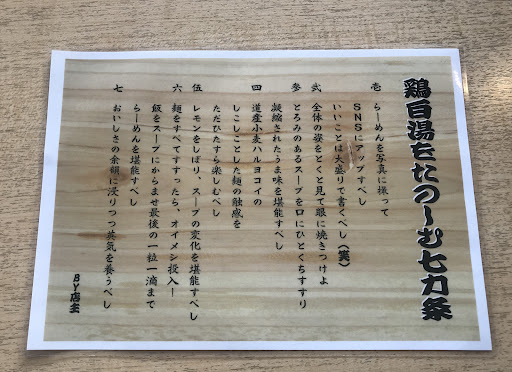 鶏白湯をたのしむ七カ条
壱 らーめんを写真に撮って
SNSにアップすべし
いいことは大盛りで書くべし（笑）
弐 全体の姿をとくと見て眼に焼きつけよ
参 とろみのあるスープを口にひとくちすすり
凝縮されたうま味を堪能すべし
四 道産小麦ハルヨコイの
しこしことした麺の触感を
ただひたすら楽しむべし
伍 レモンをしぼり、スープの変化を堪能すべし
六 麺をすべてすすったら、オイメシ投入ー
飯をスープにからませ最後の一粒一滴まで
らーめんを堪能すべし
七 おいしさの余韻に浸りつつ英気を養うべし
BY店主